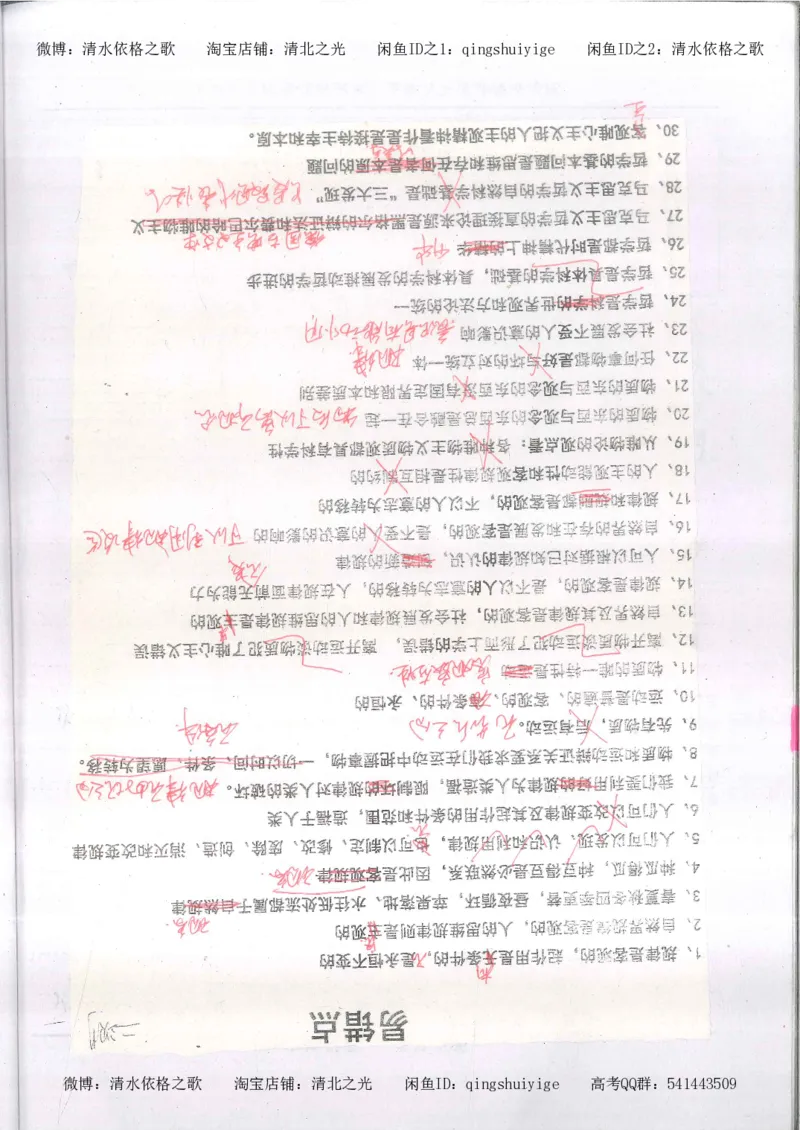 微博：清水依格之歌 淘宝店铺：清北之光 闲鱼ID之1：qingshuiyige 闲鱼ID之2：清水依格之歌
易错点
1、规律是客观的，起作用是无条件的，是永恒不变的
有
2、自然界规律是客观的，人的思维规律则是主观的
客
3、春夏秋冬四季更替，昼夜循环，苹果落地、水往低处流都属于自然规律
现象
4、种瓜得瓜，种豆得豆是必然联系，因此是客观规律
现象
5、人们可以发现、认识和利用规律，也可以制定、修改、废除、创造、消灭和改变规律
不
6、人们可以改变规律及其起作用的条件和范围，造福于人类
7、我们要利用好的规律为人类造福，限制坏的规律对人类的破坏。
规律无好坏之分
8、物质和运动辩证关系要求我们在运动中把握事物，一切以时间、条件、愿望为转移。
9、先有物质，后有运动。
无先后之分
10、运动是普遍的、客观的、有条件的、永恒的
11、物质的唯一特性是运动
客观实在性
12、离开物质谈运动犯了形而上学的错误，离开运动谈物质犯了唯心主义错误
13、自然界及其规律是客观的，社会发展规律和人的思维规律是主观的
客
14、规律是客观的，是不以人的意志为转移的，人在规律面前无能为力
15、人可以根据对已知规律的认识，创造新的规律
16、自然界的存在和发展是客观的，是不受人的意识的影响的
17、规律和规则都是客观的，不以人的意志为转移的
18、人的主观能动性和客观规律性是相互制约的
19、从唯物论的观点看：各种唯物主义物质观都具有科学性
20、物质的东西与观念的东西总是融合在一起
21、物质的东西与观念的东西没有固定界限和本质差别
22、任何事物都是好与坏的对立统一体
23、社会发展不受人的意识影响
24、哲学是科学的世界观和方法论的统一
25、哲学是具体科学的基础，具体科学的发展推动哲学的进步
26、哲学都是时代精神上的精华
27、马克思主义哲学的直接理论来源是黑格尔的辩证法和费尔巴哈的唯物主义
德国古典哲学
28、马克思主义哲学的自然科学基础是“三大发现”
29、哲学的基本问题是思维和存在何者是本原的问题
30、客观唯心主义把人的主观精神看作是是按待主宰和本原。
主
微博：清水依格之歌 淘宝店铺：清北之光 闲鱼ID：qingshuiyige 高考QQ群：541443509